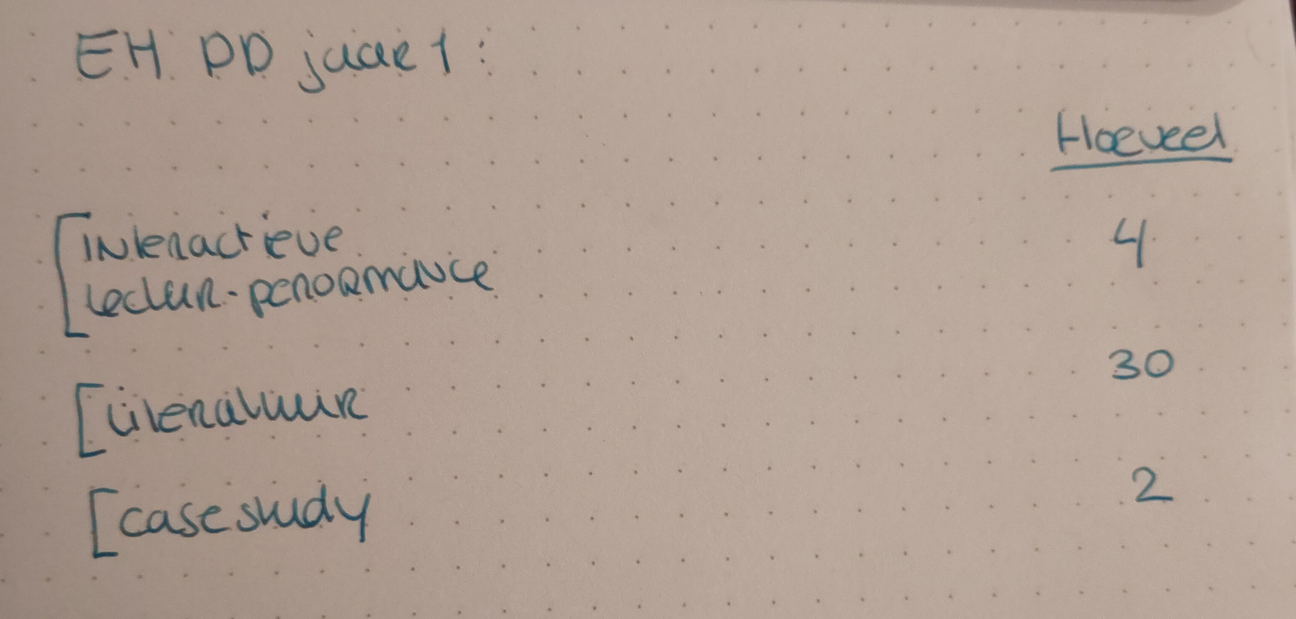 EH PD jaar 1:
Hoeveel
[interactieve 4
lectur-perormance
30
[literatuur
2
[casestudy